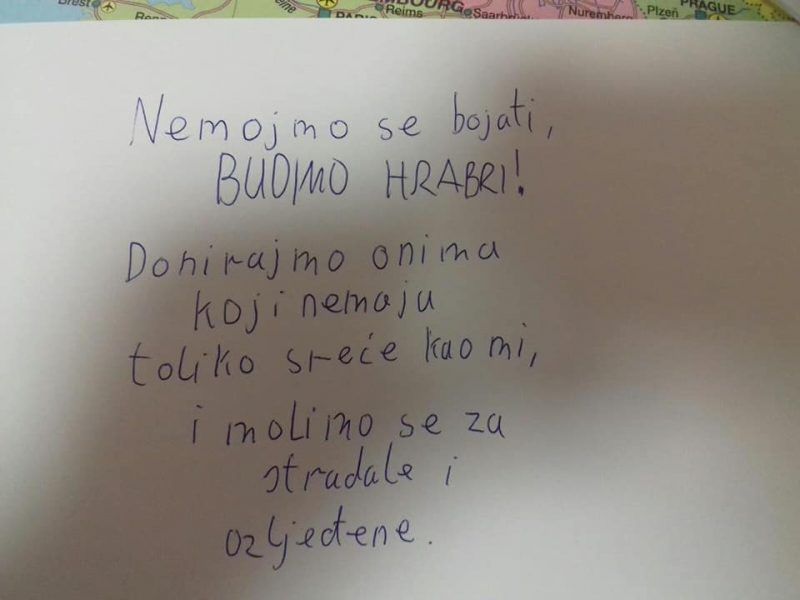 Brest
Reims
Saarbrü
Nuremberg
Plzeň
PRAGUE
PARIS
Nemojmo se bojati,
BUDIMO HRABRI!
Donirajmo onima
koji nemaju
toliko sreće kao mi,
i molimo se za
stradale i
ozljeđene.